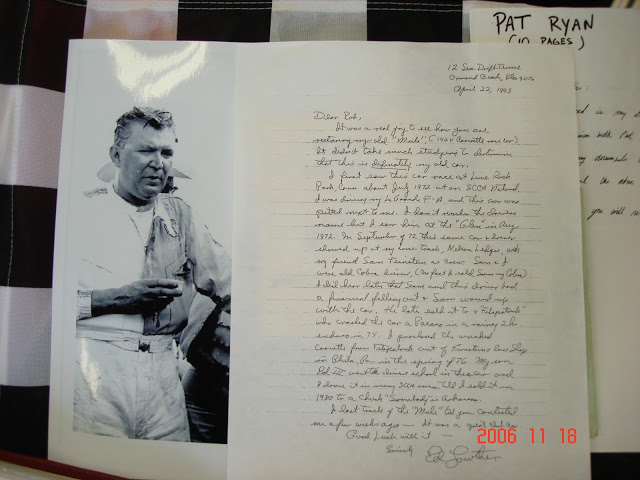 PAT RYAN
(10 PAGES)
12 Sea Drift Terrace
Ormond Beach, Fla 32176
April 22, 1993
Dear Rob,
It was a real joy to see how you are
restoring my old "Mule", (1964 Corvette race car).
It didn't take much studying to determine
that this is definately my old car.
I first saw this car race at Lime Rock
Park, Conn about July 1972 at an SCCA National.
I was driving my LeGrand F-A and this car was
pitted next to me. I don't remember the drivers
name but I saw him at the "Glen" in Aug
1972. In September of 72 this same car & driver
showed up at my home track, Nelson Ledges, with
my friend Sam Feinstein as crew. Sam & I
were old Cobra drivers, (In fact I sold Sam my Cobra)
I did hear later that Sam and this driver had
a financial falling out & Sam wound up
with the car. He later sold it to a "Fitzpatrick"
who crashed the car a Pocono in a rainy 2 hr.
enduro in 75. I purchased the wrecked
Corvette from Fitzpatrick out of Feinsteins
in Phila, Pa in the spring of 76. My son
Ed III went thru drivers school in this car and
I drove it in many SCCA races, till I sold it in
1980 to a Chuck "Somebody" in Arkansas.
I lost track of the "Mule" til you contacted
me a few weeks ago — It was a great
Good Luck with it —
Sincerely
Ed Lowther
2006 11 18